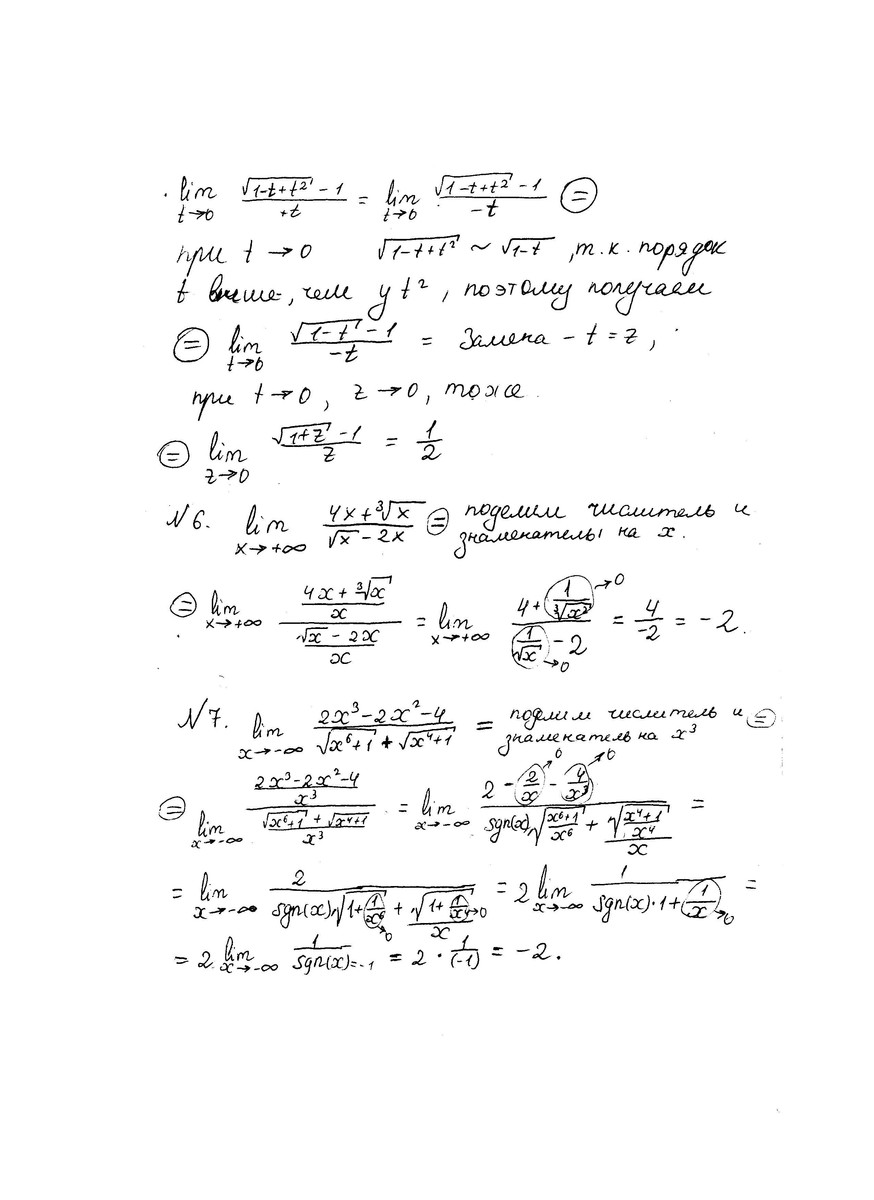 lim t→0 (√(1-t+t²) - 1)/(+t) = lim t→0 (√(1-t+t²) - 1)/(-t) (=)
при t → 0 √(1-t+t²) ~ √(1-t), т.к. порядок
t выше, чем у t², поэтому получаем
(=) lim t→0 (√(1-t) - 1)/(-t) = Замена - t = z,
при t → 0, z → 0, тоже.
(=) lim z→0 (√(1+z) - 1)/z = 1/2
N 6. lim x→+∞ (4x + ³√x)/(√x - 2x) (=) поделим числитель и
знаменатель на x.
(=) lim x→+∞ ((4x + ³√x)/x)/((√x - 2x)/x) = lim x→+∞ (4 + 1/³√x² →0)/(1/√x →0 - 2) = 4/-2 = -2.
N 7. lim x→-∞ (2x³ - 2x² - 4)/(√(x⁶+1) + √(x⁴+1)) = поделим числитель и (=)
знаменатель на x³
(=) lim x→-∞ ((2x³ - 2x² - 4)/x³)/((√(x⁶+1) + √(x⁴+1))/x³) = lim x→-∞ (2 - 2/x →0 - 4/x³ →0)/(sgn(x)√((x⁶+1)/x⁶) + √((x⁴+1)/x⁴)/x) =
= lim x→-∞ 2/(sgn(x)√(1 + 1/x⁶ →0) + √(1 + 1/x⁴ →0)/x) = 2 lim x→-∞ 1/(sgn(x)·1 + 1/x →0) =
= 2 lim x→-∞ 1/(sgn(x) = -1) = 2 · 1/(-1) = -2.